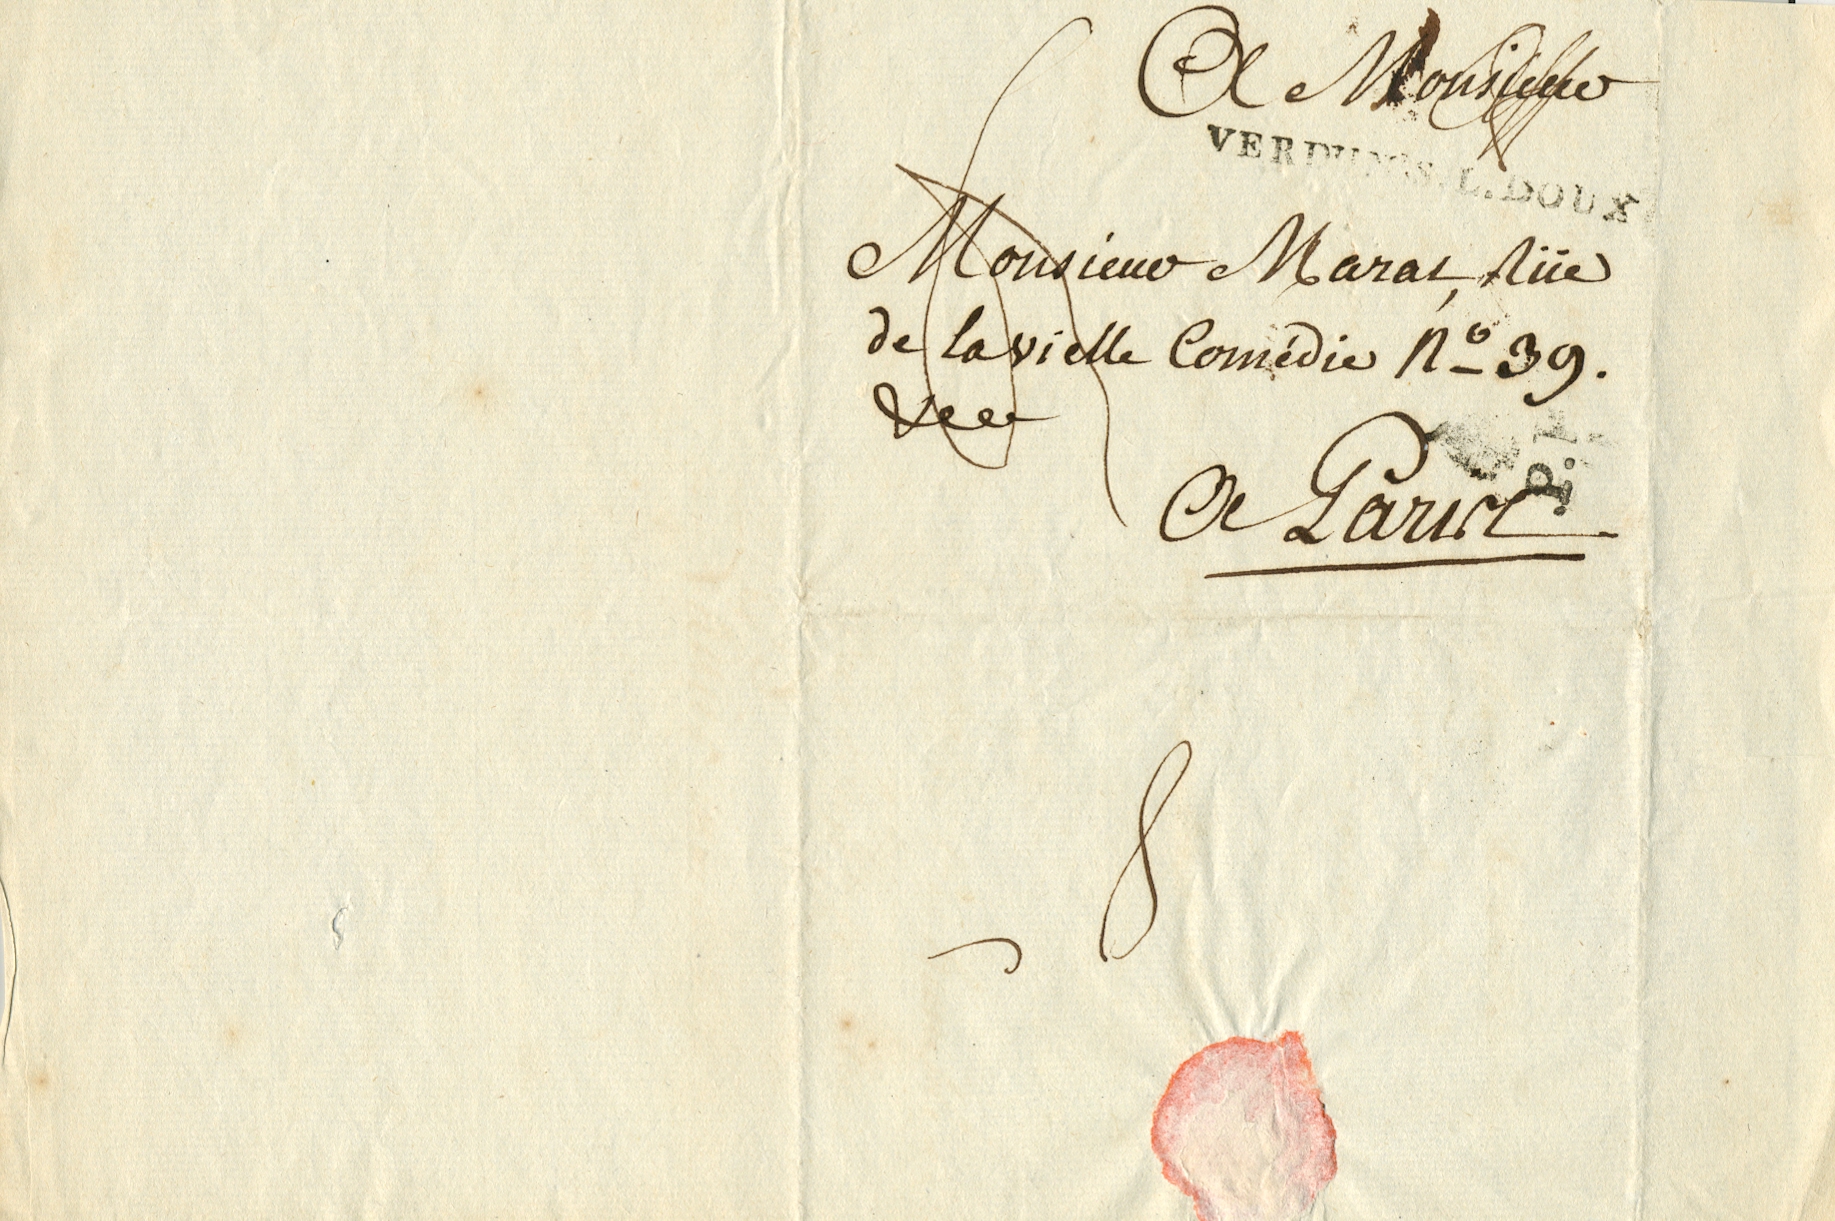 A Monsieur
VERDUN.S.L.DOUX
Monsieur Marat, Rüe
de la vielle Comédie N.o 39.
&ee
P.P.
A Paris
8